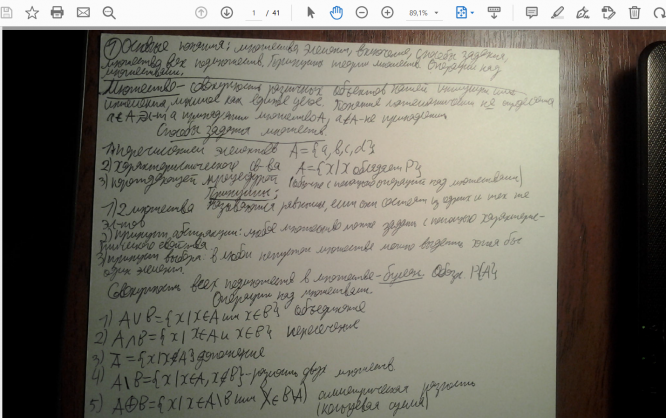 1 / 41
89,1%
① Основные понятия; множества, элементы, включение, способы задания,
множества всех подмножеств. Принципы теории множеств. Операции над
множествами.
Множество - совокупность различных объектов нашей интуиции или
интеллекта, мыслимое как единое целое. Понятие математически не определяется
a∈A, эл-т a принадлежит множеству A, a∉A - не принадлежит
Способы задания множеств.
1) перечислением элементов A={a,b,c,d}
2) характеристического св-ва A={x|x обладает P}
3) порождающей процедурой (обычно с помощью операций над множествами)
Принципы:
1) 2 множества называются равными, если они состоят из одних и тех же
эл-тов
2) принцип абстракции: любое множество можно задать с помощью характерис-
тического свойства
3) принцип выбора: в любом непустом множестве можно выделить хотя бы
один элемент.
Совокупность всех подмножеств в множестве - булеан. Обозн. P{A}
Операции над множествами.
1) A∪B={x|x∈A или x∈B} объединение
2) A∩B={x|x∈A и x∈B} пересечение
3) A̅={x|x∉A} дополнение
4) A\B={x|x∈A, x∉B} - разность двух множеств
5) A⊕B={x|x∈A\B или x∈B\A} симметрическая разность
(кольцевая сумма)